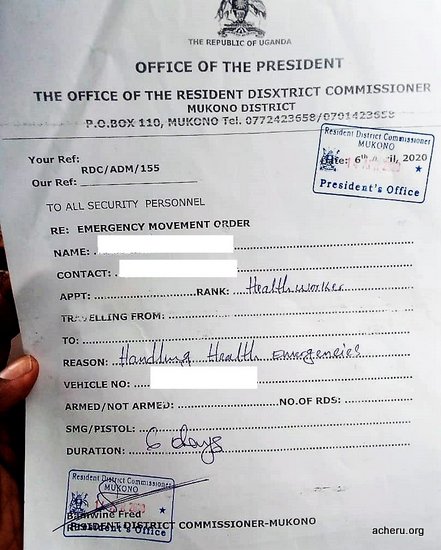 THE REPUBLIC OF UGANDA
OFFICE OF THE PRESIDENT
THE OFFICE OF THE RESIDENT DISXTRICT COMMISSIONER
MUKONO DISTRICT
P.O.BOX 110, MUKONO Tel. 0772423658/0701423658
Resident District Commissioner
MUKONO
Date: 6th April, 2020
President's Office
Your Ref:
RDC/ADM/155
Our Ref:
TO ALL SECURITY PERSONNEL
RE: EMERGENCY MOVEMENT ORDER
NAME:
CONTACT:
APPT: RANK: Health worker
TRAVELLING FROM:
TO:
REASON: Handling Health emergencies
VEHICLE NO:
ARMED/NOT ARMED: NO.OF RDS:
SMG/PISTOL:
DURATION: 6 days
Resident District Commissioner
MUKONO
Fred
RESIDENT DISTRICT COMMISSIONER-MUKONO
President's Office
acheru.org